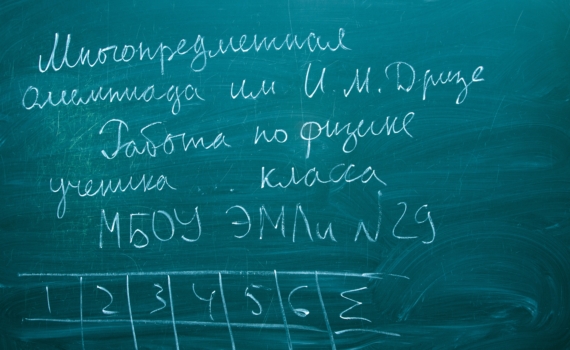 Многопредметная
олимпиада им И.М. Дризе
Работа по физике
ученика .. класса
МБОУ ЭМЛи №29
1 2 3 4 5 6 Σ